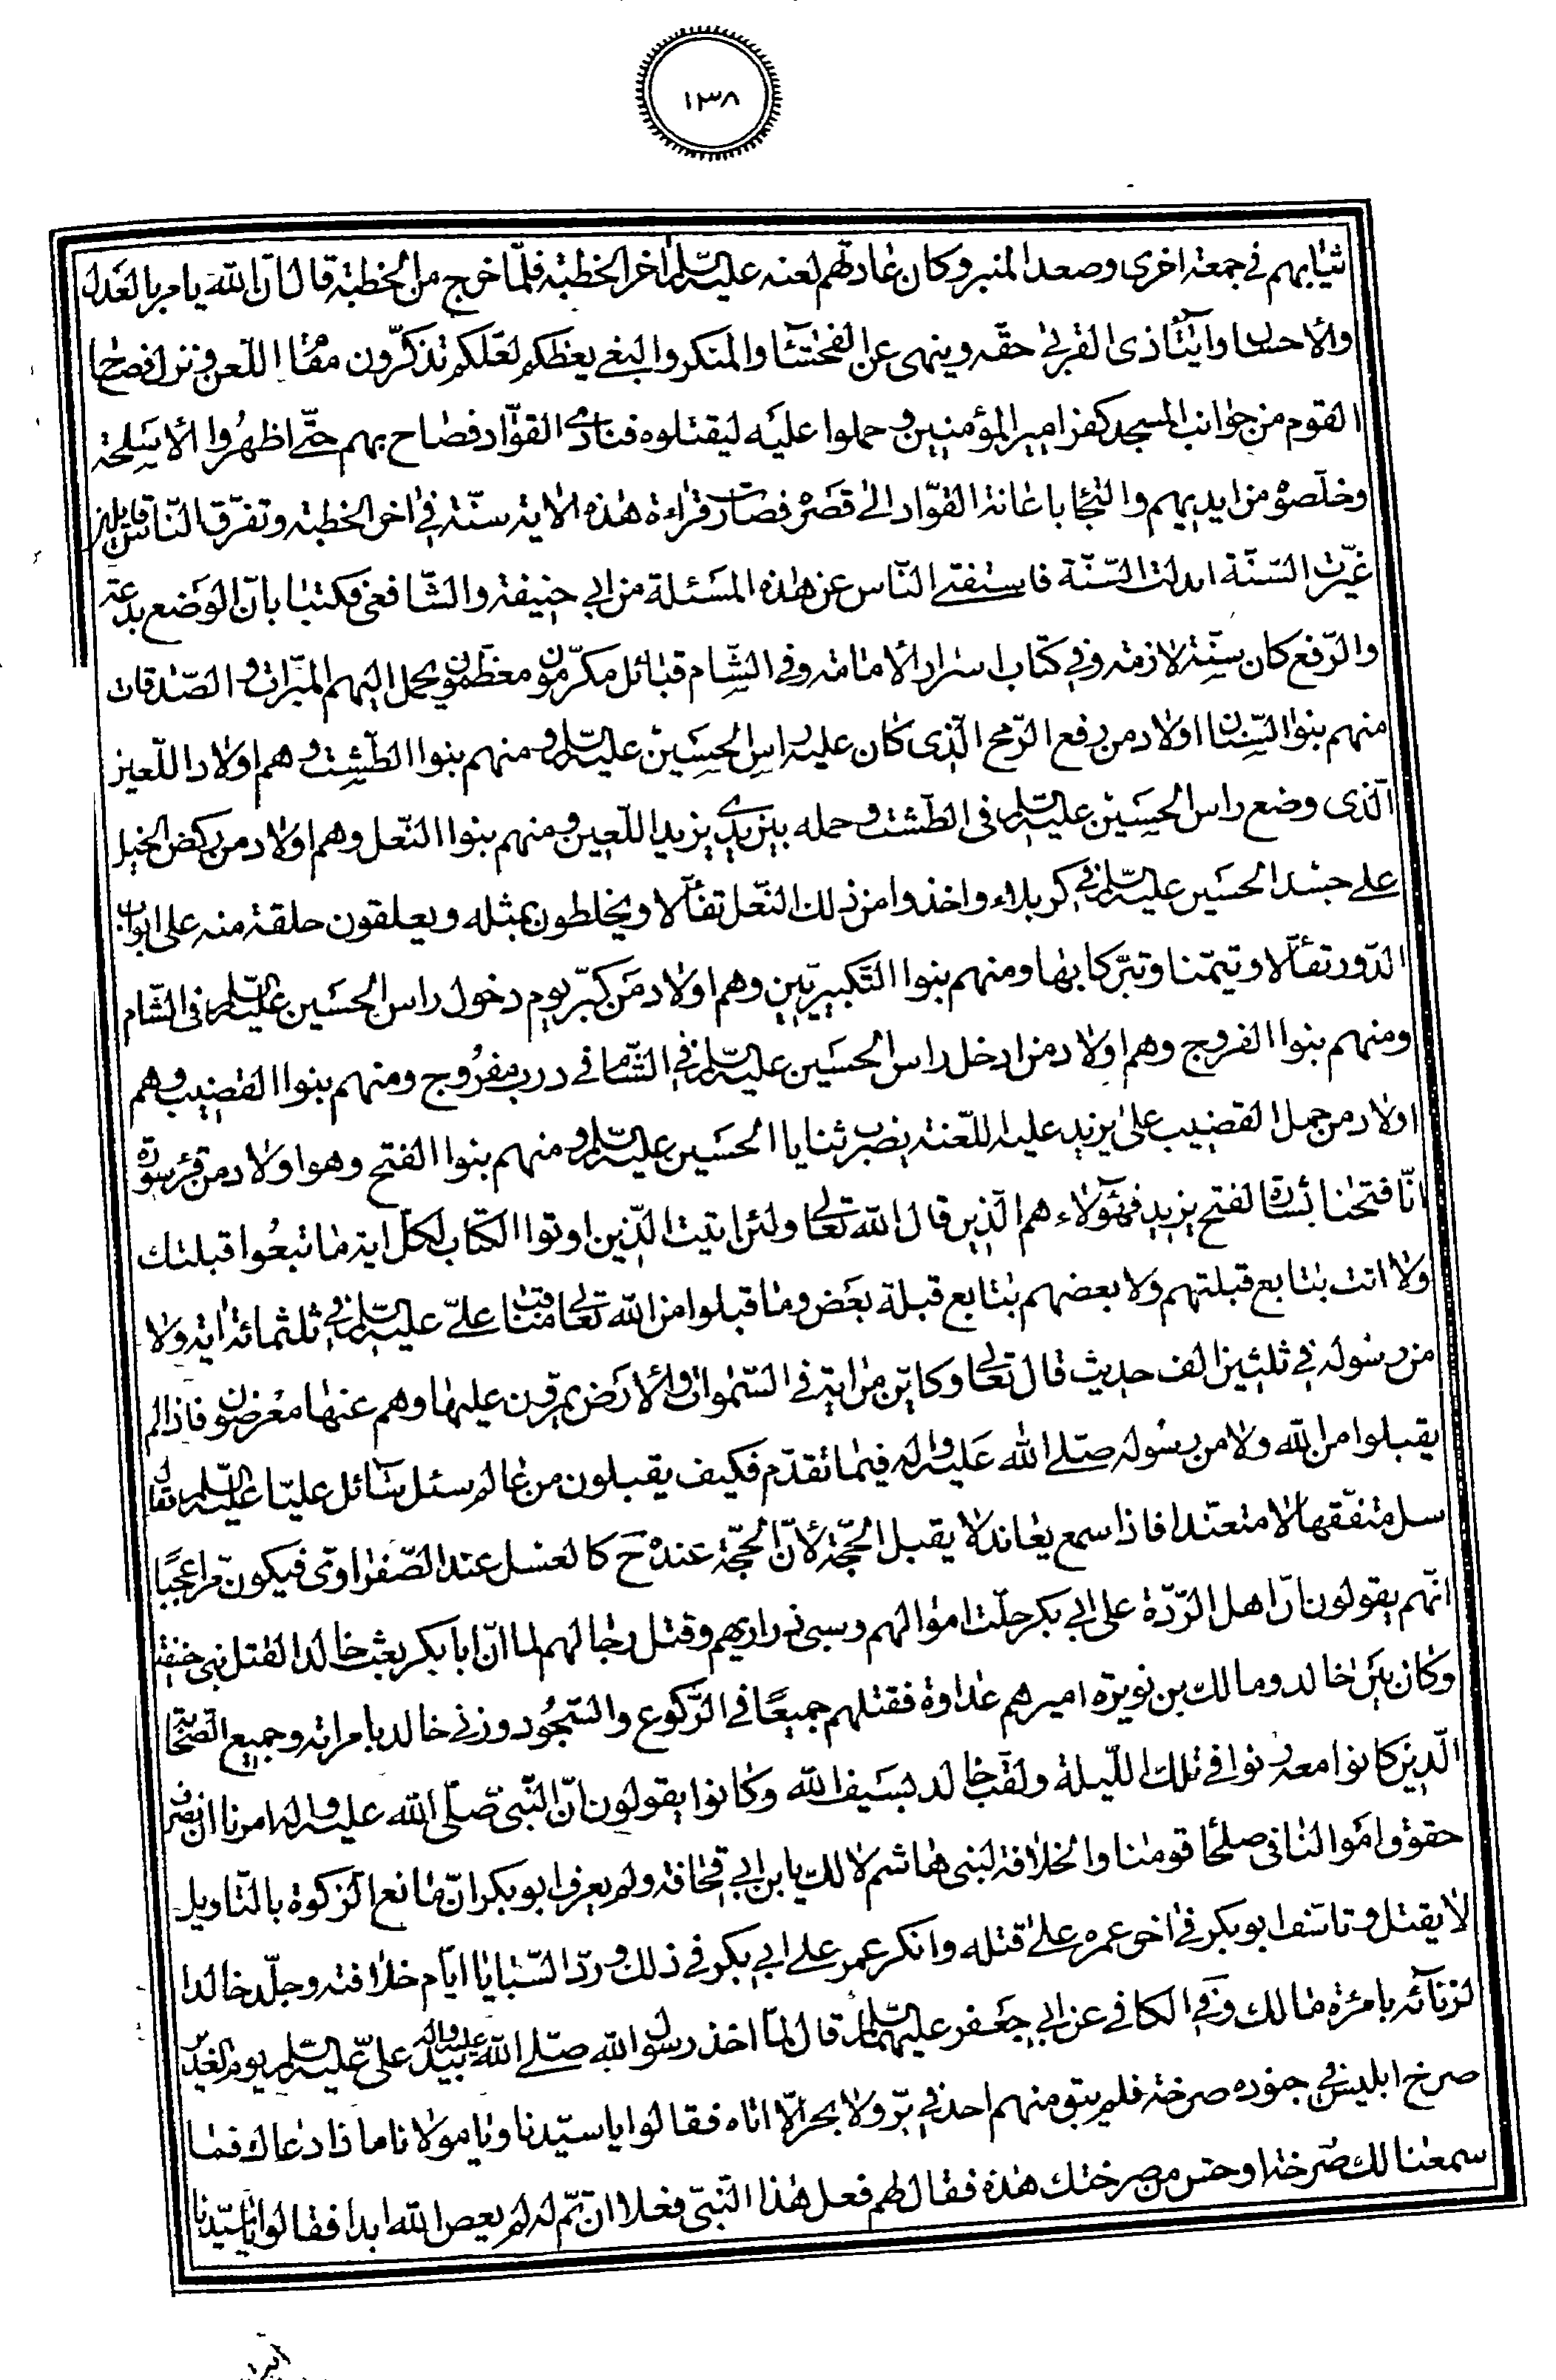 ١٣٨
ثيابهم في جمعة اخرى وصعد المنبر وكان عادتهم لعنه عليه السلام آخر الخطبة فلما خرج من الخطبة قال ان الله يامر بالعدل
والاحسان وايتاء ذى القربى حقه وينهى عن الفحشاء والمنكر والبغى يعظكم لعلكم تذكرون مقام اللعن ونزل فصاح
القوم من جوانب المسجد كفر امير المؤمنين وحملوا عليه ليقتلوه فنادى القواد فصاح بهم حتى اظهروا الاسلحة
وخلصوه من ايديهم والتجا باعانة القواد الى قصره فصارت قراءة هذه الاية سنة في اخر الخطبة وتفرق الناس قايلين
غيرت السنة ابدلت السنة فاستفتى الناس عن هذه المسئلة من ابي حنيفة والشافعى فكتبا بان الوضع بدعة
والرفع كان سنة لازمة وفي كتاب اسرار الامامة وفي الشام قبائل مكرمون معظمون يحمل اليهم المبرات والصدقات
منهم بنوا السنان اولاد من رفع الرمح الذى كان عليه راس الحسين عليه السلام ومنهم بنوا الطشت وهم اولاد اللعين
الذى وضع راس الحسين عليه السلام فى الطشت وحمله بين يدى يزيد اللعين ومنهم بنوا النعل وهم اولاد من ركض الخيل
على جسد الحسين عليه السلام في كربلاء واخذوا من ذلك النعل تفألا ويخلطون بمثله ويعلقون حلقة منه على ابواب
الدور تفألا وتيمنا وتبركا بها ومنهم بنوا التكبيريين وهم اولاد من كبر يوم دخول راس الحسين عليه السلام في الشام
ومنهم بنوا الفروج وهم اولاد من ادخل راس الحسين عليه السلام في الشام في درب مفروج ومنهم بنوا القضيب وهم
اولاد من حمل القضيب على يزيد عليه اللعنة بضرب ثنايا الحسين عليه السلام ومنهم بنوا الفتح وهو اولاد من قرء سورة
انا فتحنا بشارة لفتح يزيد فهؤلاء هم الذين قال الله تعالى ولئن اتيت الذين اوتوا الكتاب لكل اية ما تبعوا قبلتك
ولا انت بتابع قبلتهم ولا بعضهم بتابع قبلة بعض وما قبلوا من الله تعالى مناقب على عليه السلام في ثلثمائة اية ولا
من رسوله في ثلثين الف حديث قال تعالى وكاين من اية في السموات والارض يمرون عليها وهم عنها معرضون فاذا لم
يقبلوا من الله ولا من رسوله صلى الله عليه واله فيما تقدم فكيف يقبلون من عالم سئل سائل عليا عليه السلام فقال
سل متفقها لا متعندا فاذا سمع يعاند لا يقبل الحجة لان الحجة عنده ح كالعسل عند الصفراوى فيكون مرا عجبا
انهم يقولون ان اهل الردة على ابي بكر حلت اموالهم وسبى ذراريهم وقتل رجالهم لما ان ابا بكر بعث خالدا لقتل بنى حنيفة
وكان بين خالد ومالك بن نويره اميرهم عداوة فقتلهم جميعا في الركوع والسجود وزنى خالد بامراته وجميع الصحابة
الذين كانوا معه زنوا في تلك الليلة ولقب خالد بسيف الله وكانوا يقولون ان النبى صلى الله عليه واله امرنا ان نصرف
حقوق اموالنا فى صلحاء قومنا والخلافة لبنى هاشم لا لك يا بن ابي قحافة ولم يعرف ابو بكر ان مانع الزكوة بالتاويل
لا يقتل وتاسف ابو بكر في اخر عمره على قتله وانكر عمر على ابي بكر في ذلك ورد السبايا ايام خلافته وجلد خالدا
لزنائه بامرئة مالك وفي الكافى عن ابي جعفر عليهما السلام قال لما اخذ رسول الله صلى الله عليه واله بيد على عليه السلام يوم الغدير
صرخ ابليس في جنوده صرخة فلم يبق منهم احد في بر ولا بحر الا اتاه فقالوا يا سيدنا ويا مولانا ماذا دعاك فما
سمعنا لك صرخة اوحش من صرختك هذه فقال لهم فعل هذا النبى فعلا ان تم له لم يعص الله ابدا فقالوا يا سيدنا